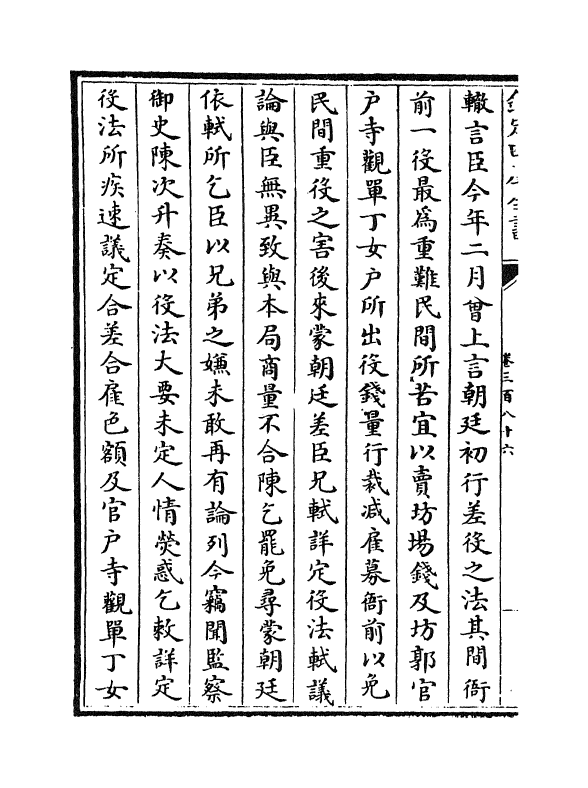 欽定四庫全書
卷三百八十六
一
轍言臣今年二月曾上言朝廷初行差役之法其間衙
前一役最為重難民間所苦宜以賣坊場錢及坊郭官
户寺觀單丁女户所出役錢量行裁减雇募衙前以免
民間重役之害後來蒙朝廷差臣兄軾詳定役法軾議
論與臣無異致與本局商量不合陳乞罷免尋蒙朝廷
依軾所乞臣以兄弟之嫌未敢再有論列今竊聞監察
御史陳次升奏以役法大要未定人情熒惑乞敕詳定
役法所疾速議定合差合雇色額及官户寺觀單丁女